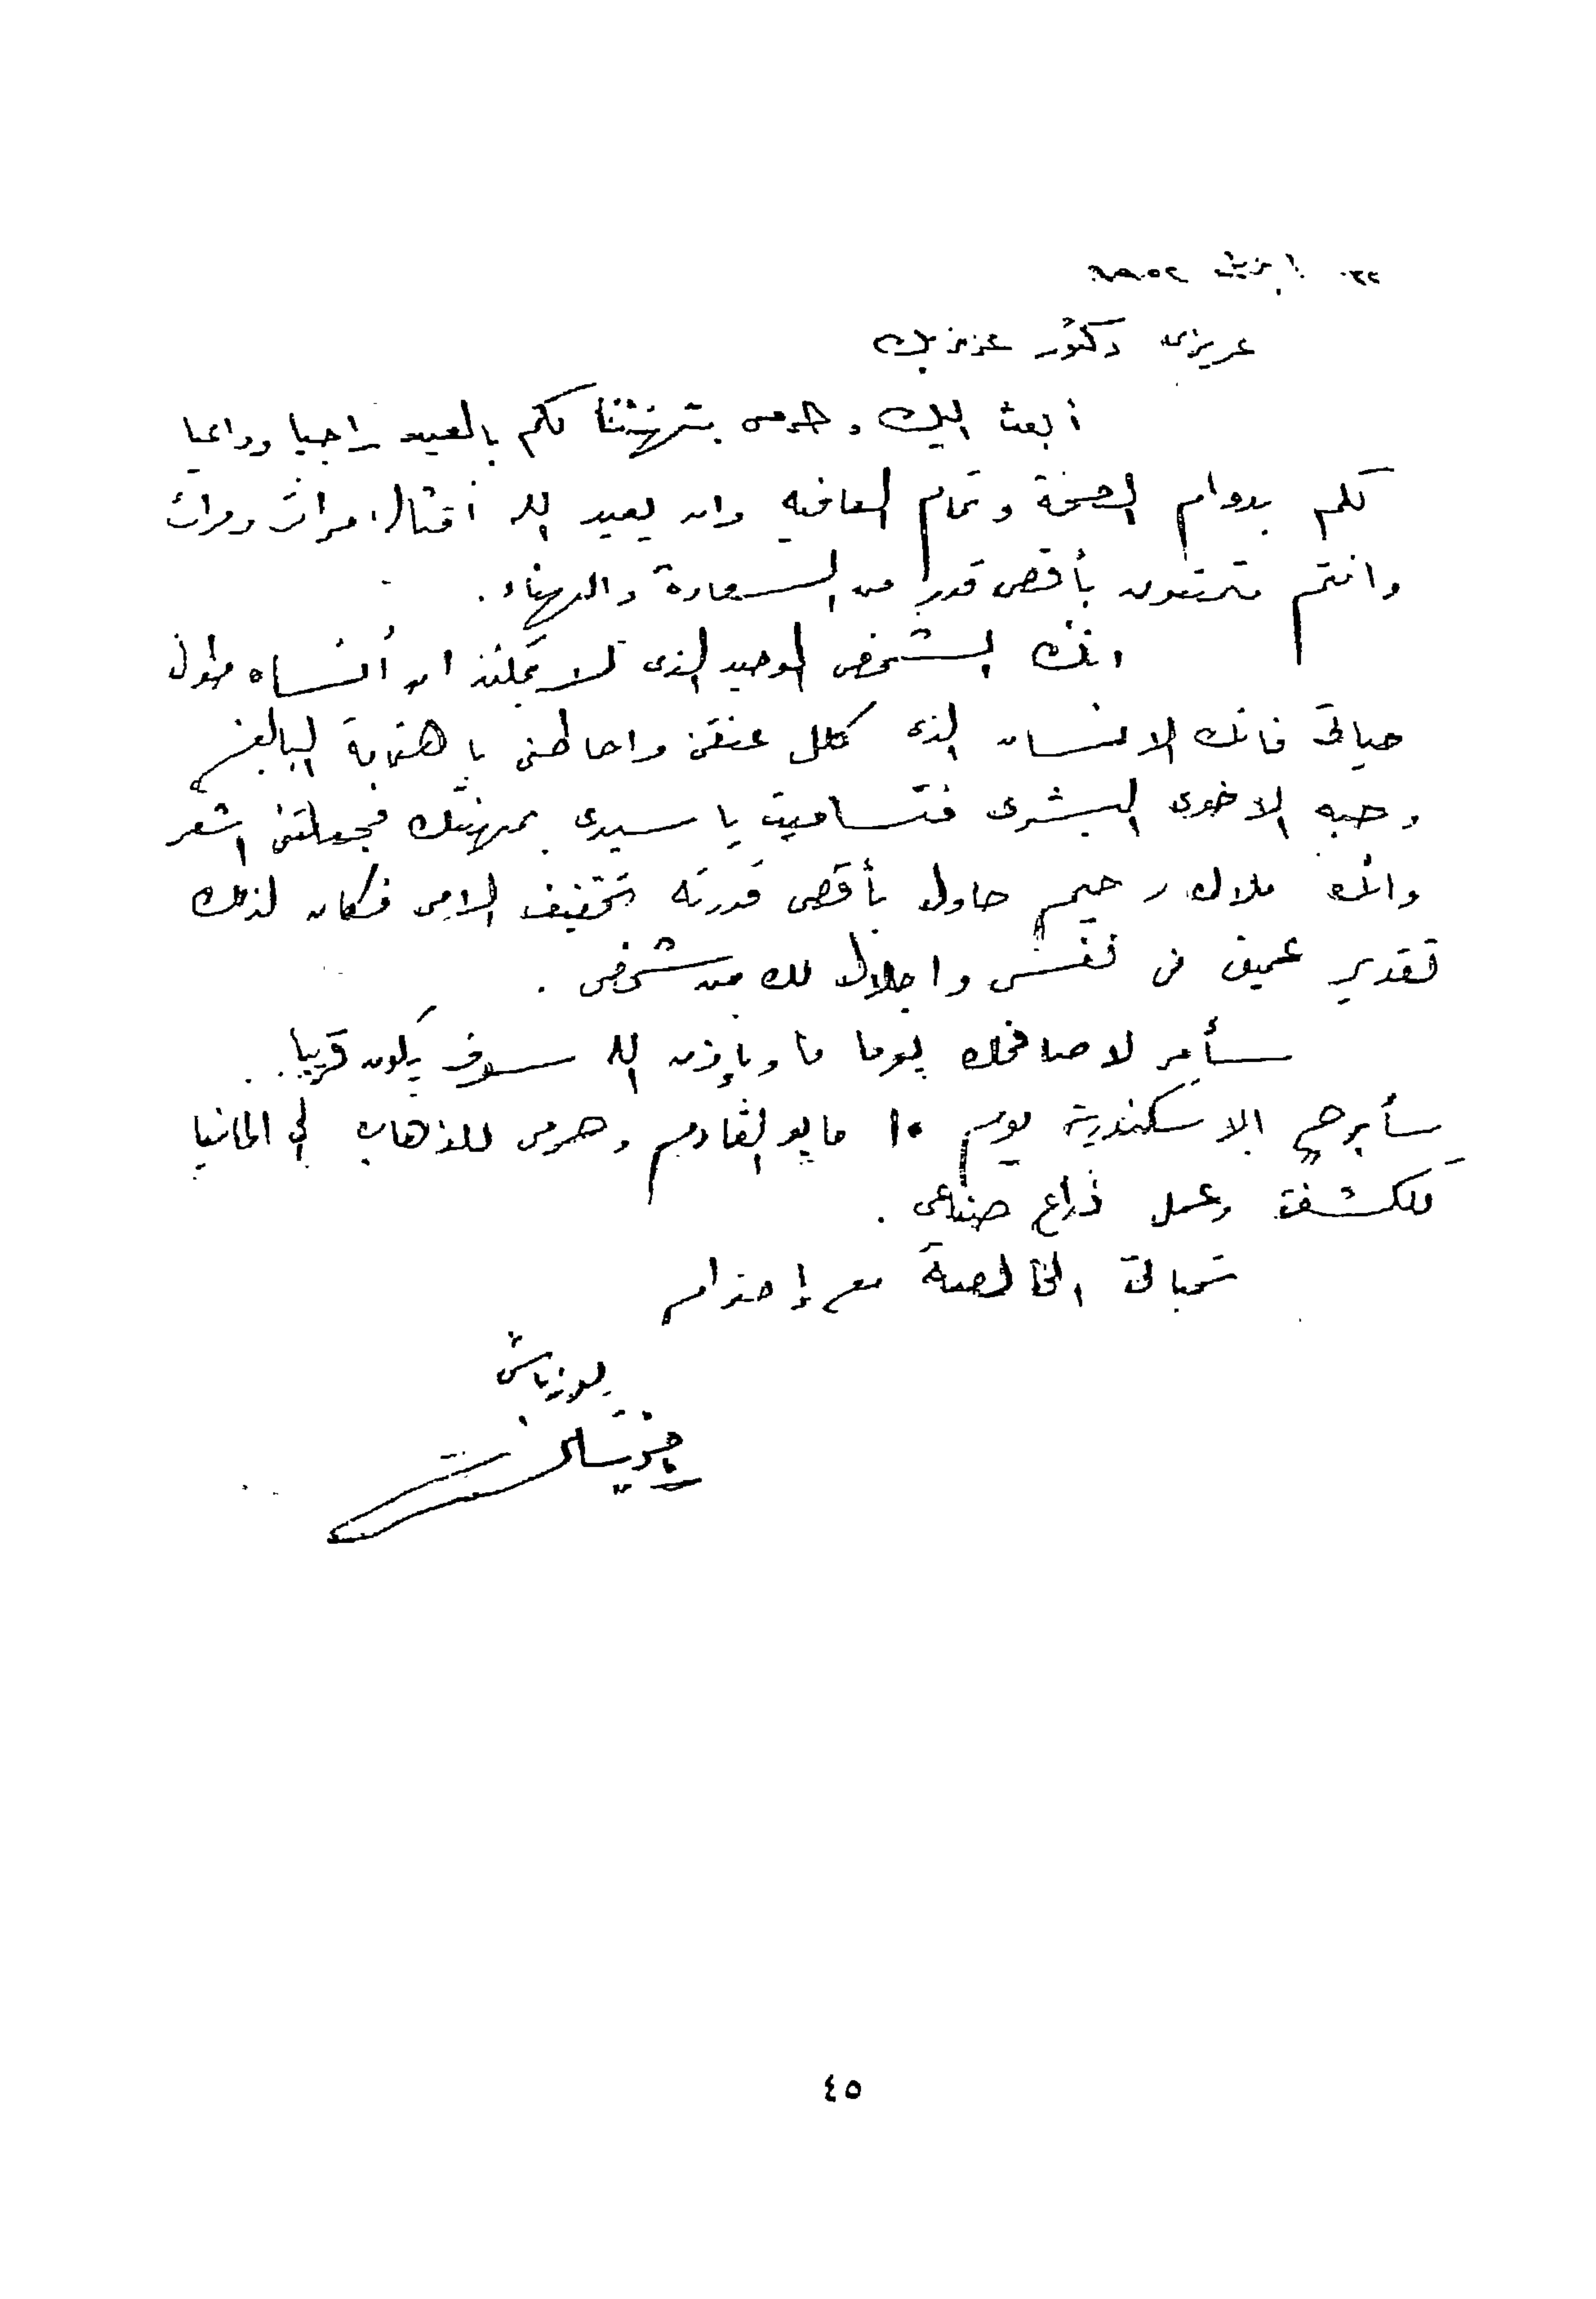 ٢٢ ابريل ١٩٥٢
عزيزى دكتور عزيز بك
أبعث اليك وحرمى بتهنئتنا لكم بالعيد راجيا وداعيا
لكم بدوام الصحة وتمام العافيه وان يعيد الله أمثاله مرات ومرات
وانتم متمتعون بأقصى قدر من السعادة والهناء .
انك الشخص الوحيد الذى لا يمكننى ان أنساه طول
حياتى فانك الانسان الذى كلل عنقى واحاطنى باهتمامه البالغ
وحبه الاخوى البشرى فتساميت يا سيدى بمهنتك فجعلتنى اشعر
وانك ملاك رحيم حاول بأقصى قدرته تخفيف الامى فكان لذلك
تقدير عميق فى نفسى واجلال لك من شخصى .
سأمر لاصافحك يوما ما وبإذن الله سوف يكون قريبا .
سأبرح الاسكندرية يوم ١٠ مايو القادم وحرمى للذهاب الى المانيا
للكشف وعمل ذراع صناعى .
تحياتى الخالصة مع إحترام
يوزباشى
٤٥